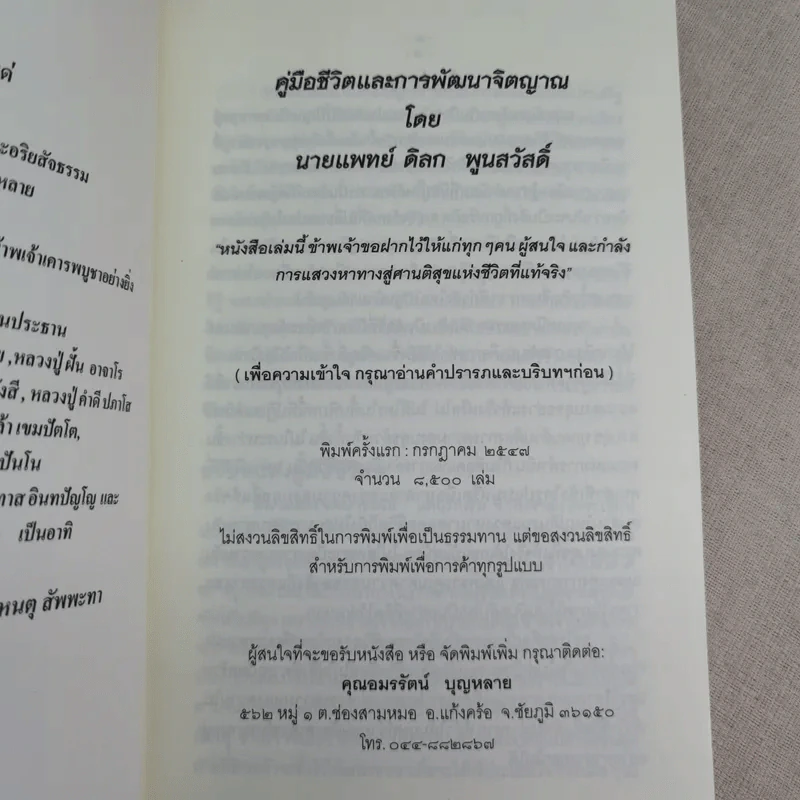 ะอริยสัจธรรม
หลาย
าพเจ้าเคารพบูชาอย่างยิ่ง
นประธาน
,หลวงปู่ ฝั้น อาจาโร
, หลวงปู่ คำดี ปภาโส
เขมปัตโต,
ปันโน
ทาส อินทปัญโญ และ
เป็นอาทิ
เหนตุ สัพพะทา
คู่มือชีวิตและการพัฒนาจิตญาณ
โดย
นายแพทย์ ดิลก พูนสวัสดิ์
"หนังสือเล่มนี้ ข้าพเจ้าขอฝากไว้ให้แก่ทุก ๆคน ผู้สนใจ และกำลัง
การแสวงหาทางสู่ศานติสุขแห่งชีวิตที่แท้จริง"
( เพื่อความเข้าใจ กรุณาอ่านคำปรารภและบริบทฯก่อน )
พิมพ์ครั้งแรก : กรกฎาคม ๒๕๔๗
จำนวน ๘,๕๐๐ เล่ม
ไม่สงวนลิขสิทธิ์ในการพิมพ์เพื่อเป็นธรรมทาน แต่ขอสงวนลิขสิทธิ์
สำหรับการพิมพ์เพื่อการค้าทุกรูปแบบ
ผู้สนใจที่จะขอรับหนังสือ หรือ จัดพิมพ์เพิ่ม กรุณาติดต่อ:
คุณอมรรัตน์ บุญหลาย
๕๖๒ หมู่ ๑ ต.ช่องสามหมอ อ.แก้งคร้อ จ.ชัยภูมิ ๓๖๑๕๐
โทร. ๐๔๔-๘๘๒๘๖๗